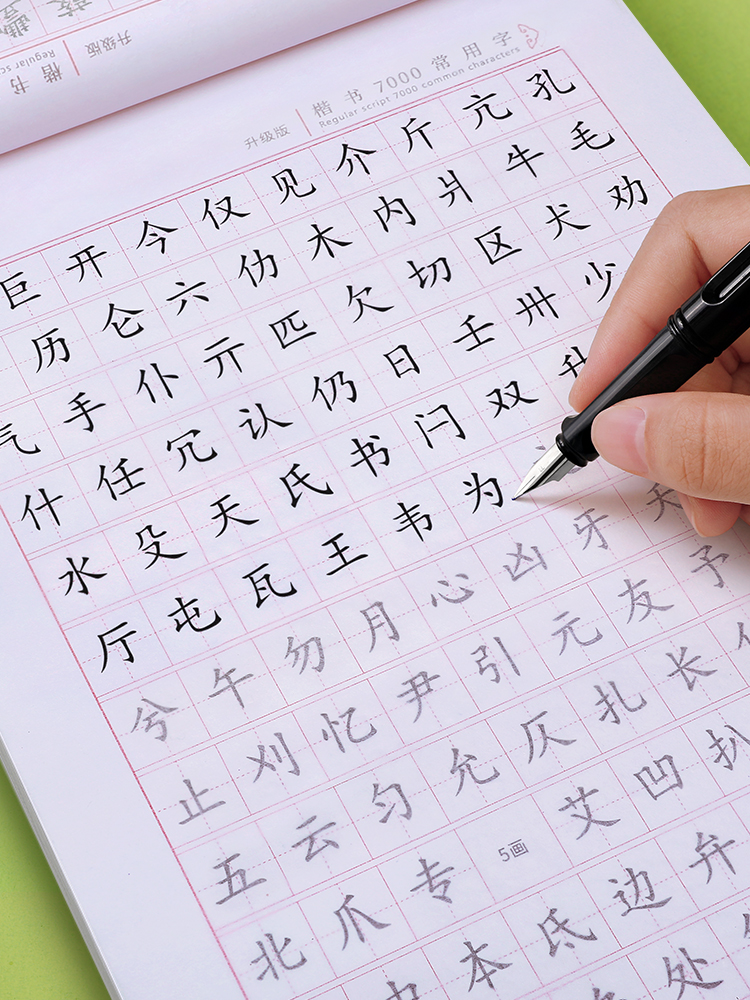 楷书
Regular sc
升级版
升级版 楷书 7000 常用字
Regular script 7000 common characters
巨开今仅见介斤亢孔
历仑六仂木内爿牛毛
气手仆亓匹欠切区犬劝
什任冗认仍日壬卅少
水殳天氏书闩双升
厅屯瓦王韦为
兮午勿月心凶牙天
止刈忆尹引元友予
五云匀允仄扎长
北爪专5画艾凹扒
本氐边弁
处